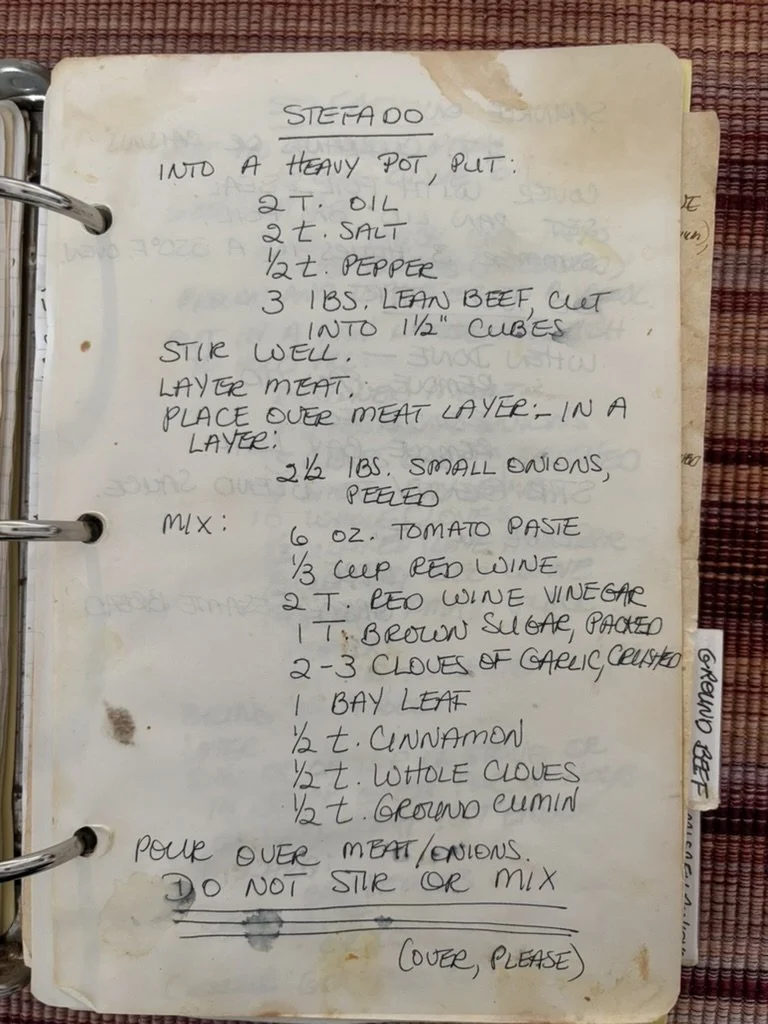 STEFADO
INTO A HEAVY POT, PUT:
2 T. OIL
2 t. SALT
1/2 t. PEPPER
3 lBS. LEAN BEEF, CUT
INTO 1 1/2" CUBES
STIR WELL.
LAYER MEAT.
PLACE OVER MEAT LAYER:- IN A
LAYER:
2 1/2 lBS. SMALL ONIONS,
PEELED
MIX:
6 OZ. TOMATO PASTE
1/3 CUP RED WINE
2 T. RED WINE VINEGAR
1 T. BROWN SUGAR, PACKED
2-3 CLOVES OF GARLIC, CRUSHED
1 BAY LEAF
1/2 t. CINNAMON
1/2 t. WHOLE CLOVES
1/2 t. GROUND CUMIN
POUR OVER MEAT/ONIONS.
DO NOT STIR OR MIX
(OVER, PLEASE)
GROUND BEEF